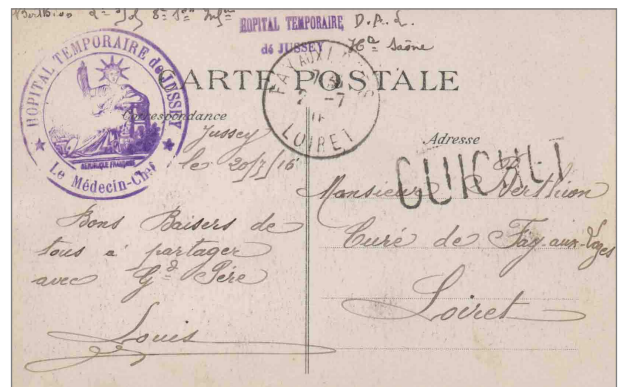 HOPITAL TEMPORAIRE D.A.L.
de JUSSEY Hte Saône
HOPITAL TEMPORAIRE de JUSSEY
Le Médecin-Chef
CARTE POSTALE
LOIRET
Correspondance
Jussey
le 20/7/16
Bons Baisers de
tous a partager
avec Gd Père
Louis
Adresse
GUICHET
Monsieur Berthion
Curé de Fay-aux-Loges
Loiret